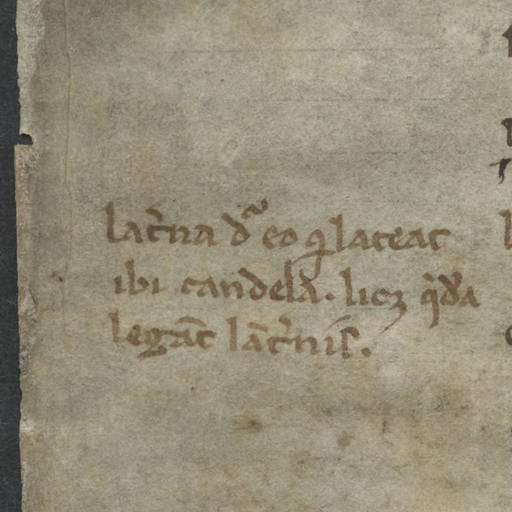 lat̉na dr̃ eo q̃ lateat
ibi candela. licꝫ q̉dã
legãt lãt̉nis.